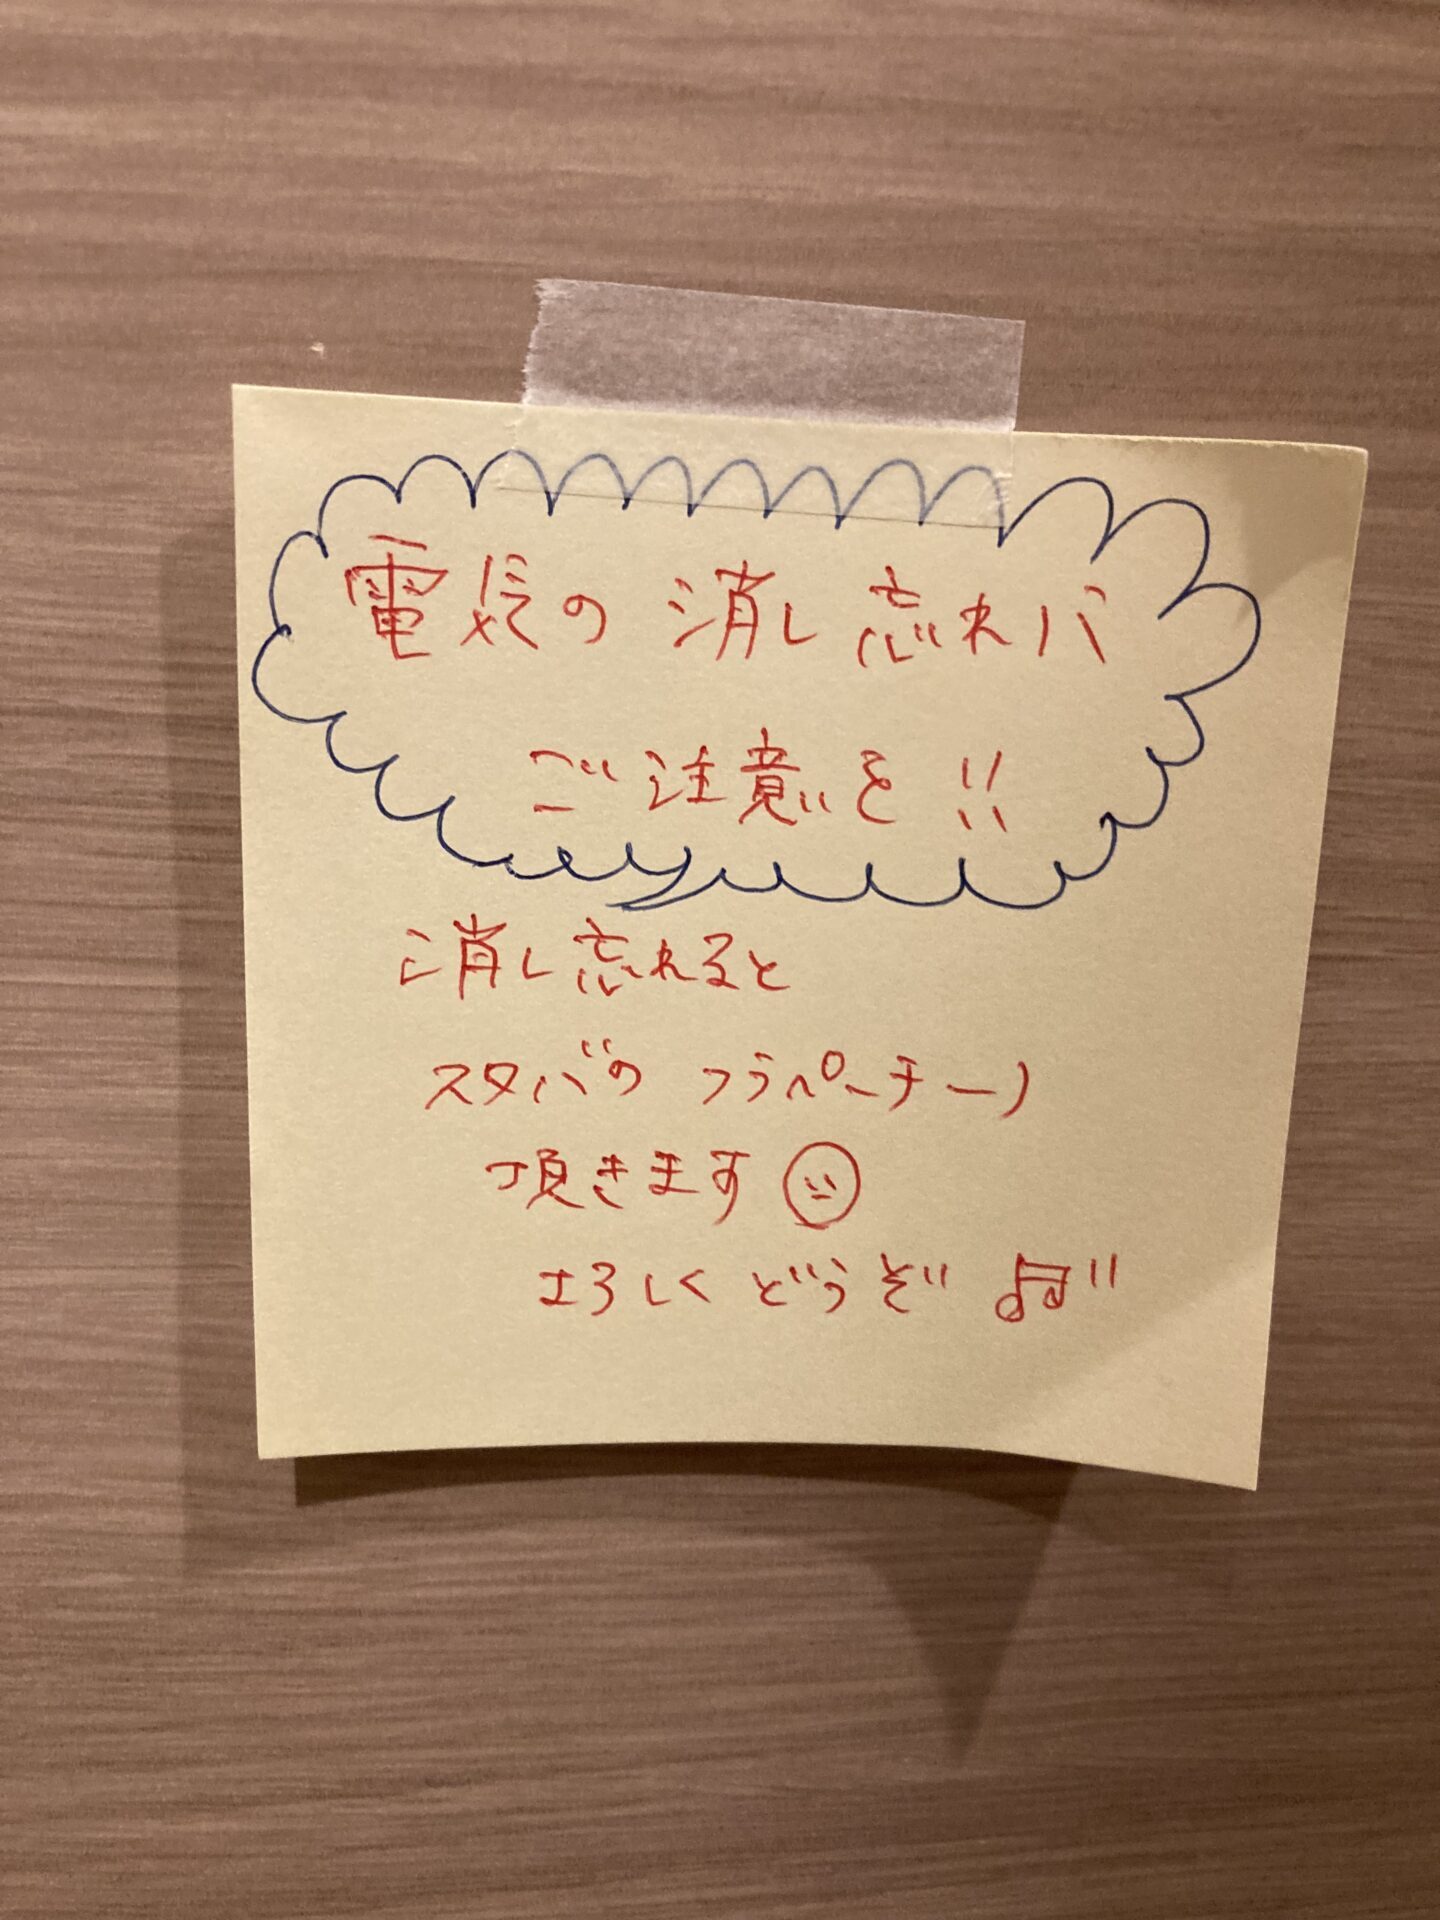 電気の消し忘れハ
ご注意を!!
消し忘れると
スタバの フラペーチーノ
頂きます
よろしくどうぞ